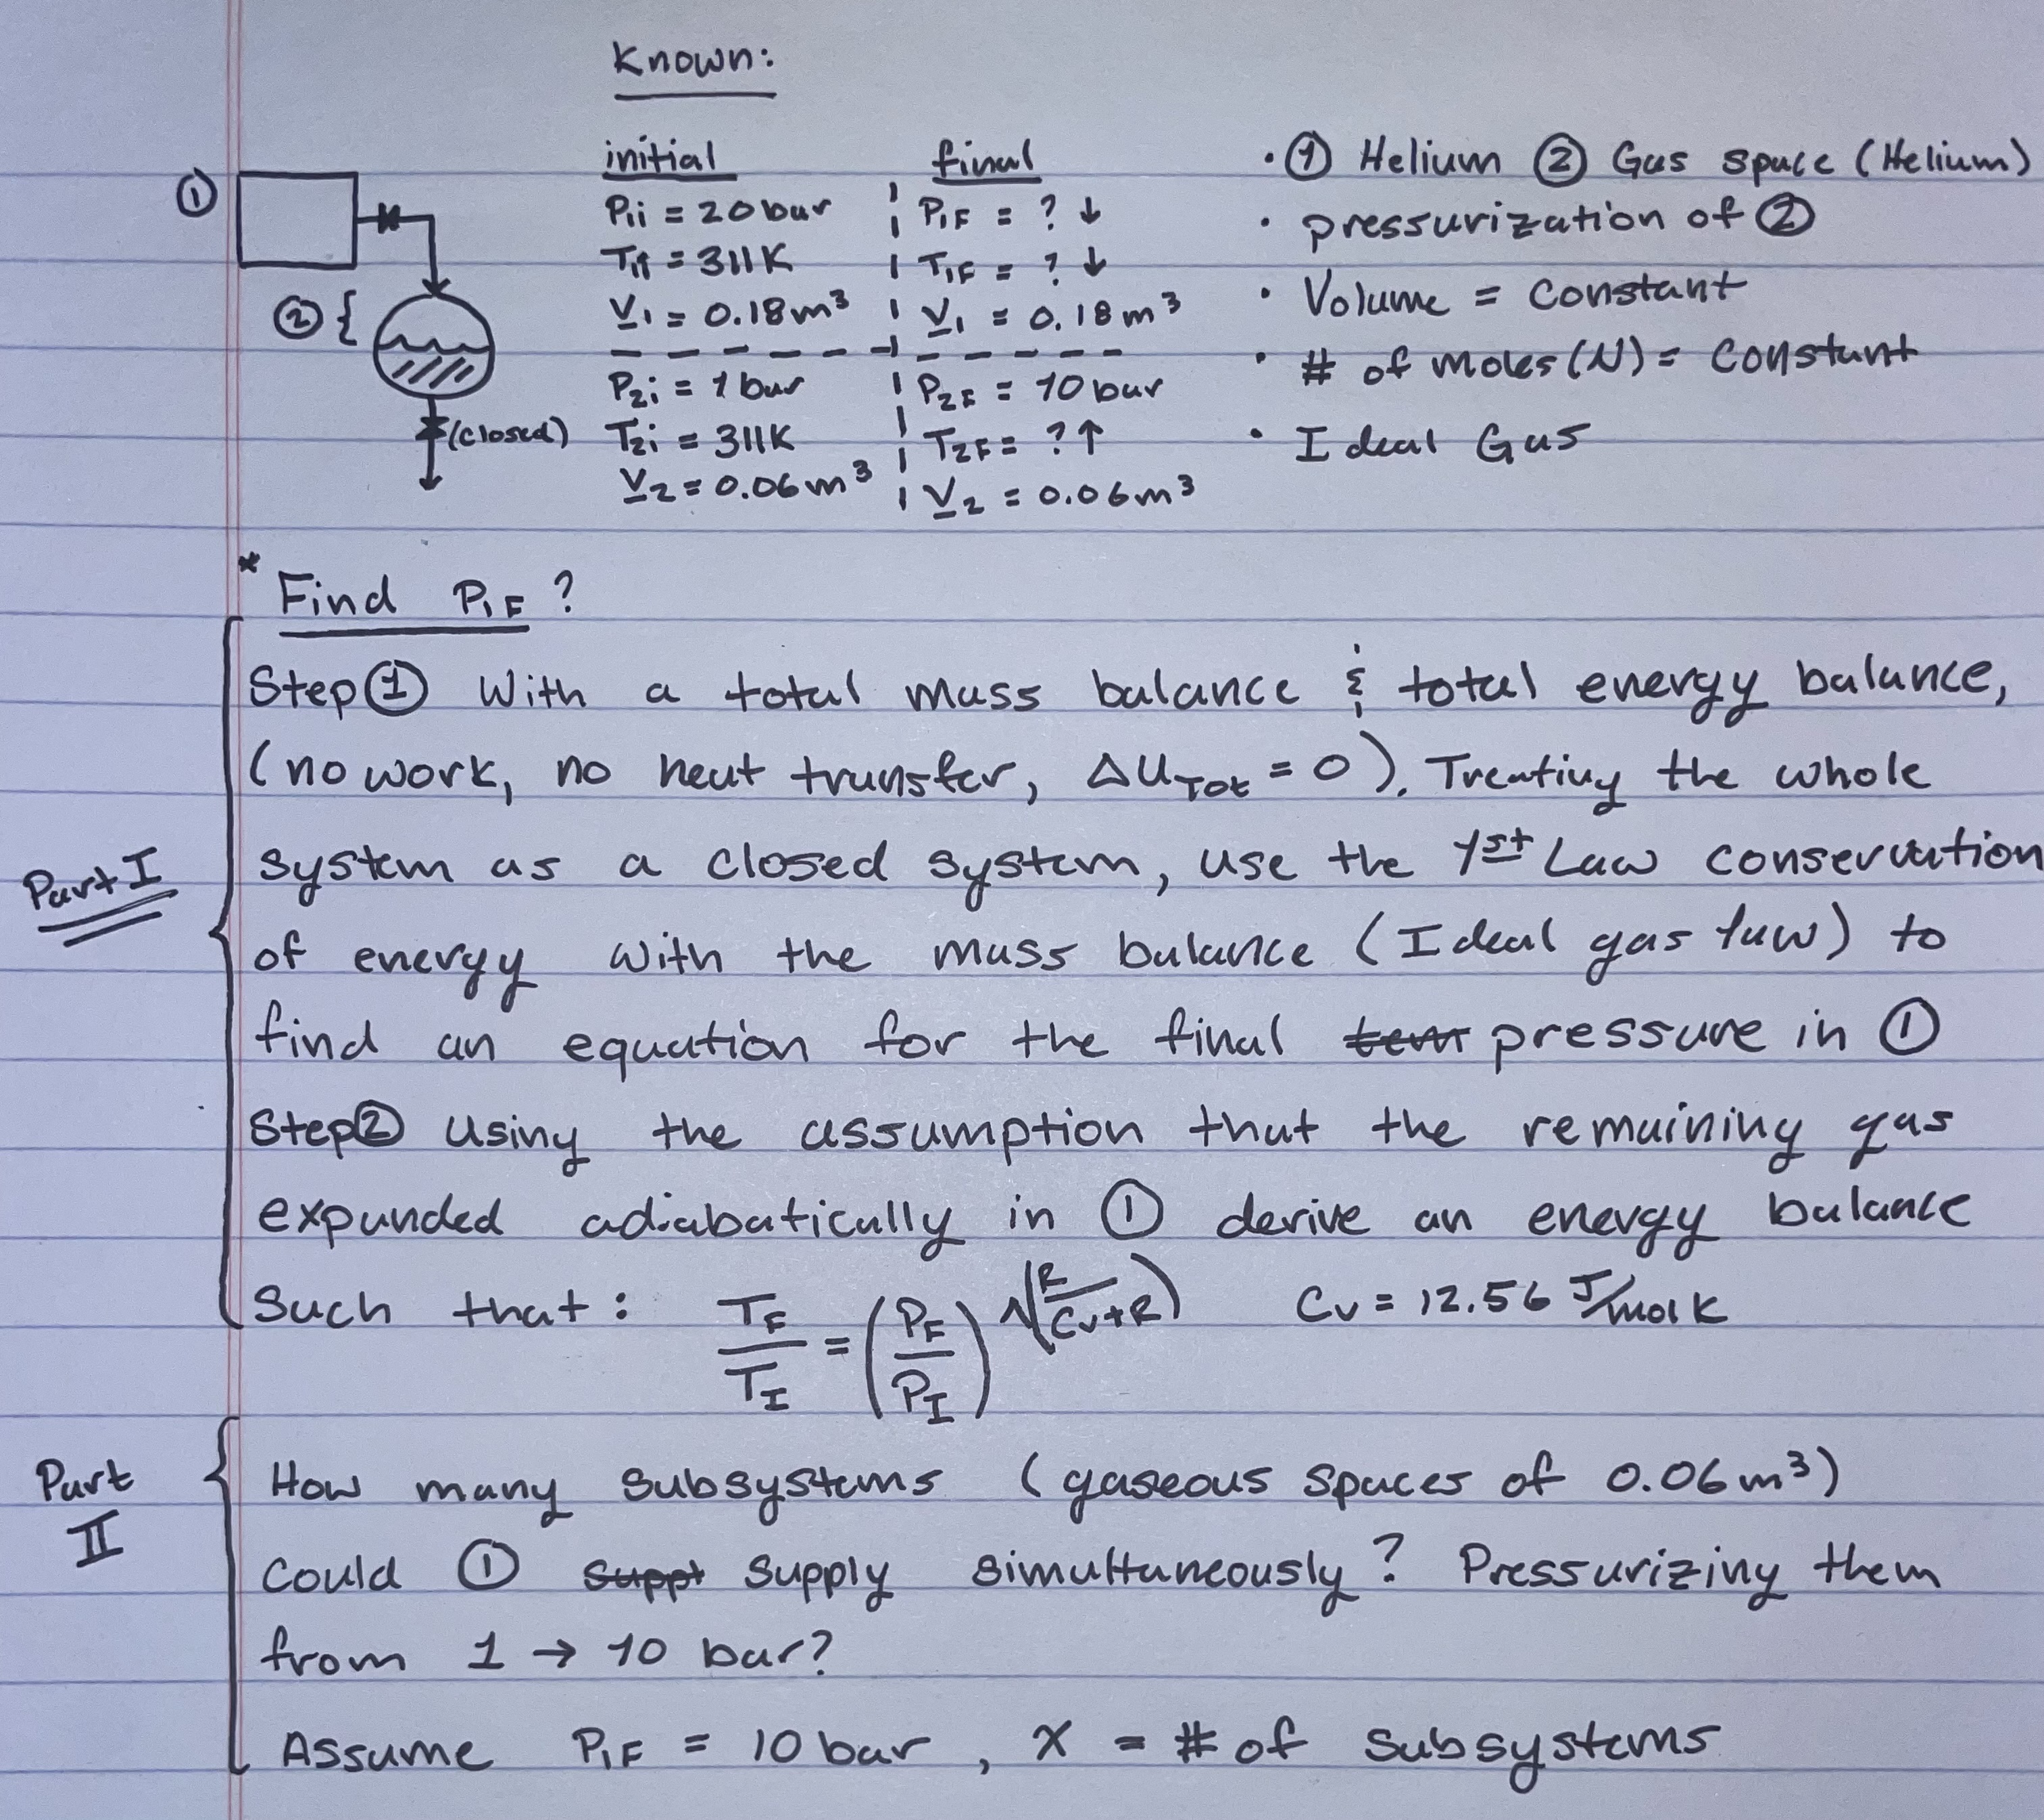 Known:
initial final
① P₁i = 20 bar P₁F = ? ↓
T₁i = 311K T₁F = ? ↓
V₁ = 0.18m³ V₁ = 0.18m³
② { P₂i = 1 bar P₂F = 10 bar
(closed) T₂i = 311K T₂F = ? ↑
V₂ = 0.06m³ V₂ = 0.06m³
• ① Helium ② Gas space (Helium)
• pressurization of ②
• Volume = constant
• # of moles (N) = constant
• Ideal Gas
* Find P₁F ?
Part I
Step ① With a total mass balance & total energy balance,
(no work, no heat transfer, ΔU_Tot = 0). Treating the whole
system as a closed system, use the 1st Law conservation
of energy with the mass balance (Ideal gas law) to
find an equation for the final pressure in ①
Step ② Using the assumption that the remaining gas
expanded adiabatically in ① derive an energy balance
Such that: T_F/T_I = (P_F/P_I)^√(R/(Cv+R)) Cv = 12.56 J/mol K
Part II
How many subsystems (gaseous spaces of 0.06m³)
could ① supply simultaneously? Pressurizing them
from 1 → 10 bar?
Assume P₁F = 10 bar, X = # of subsystems